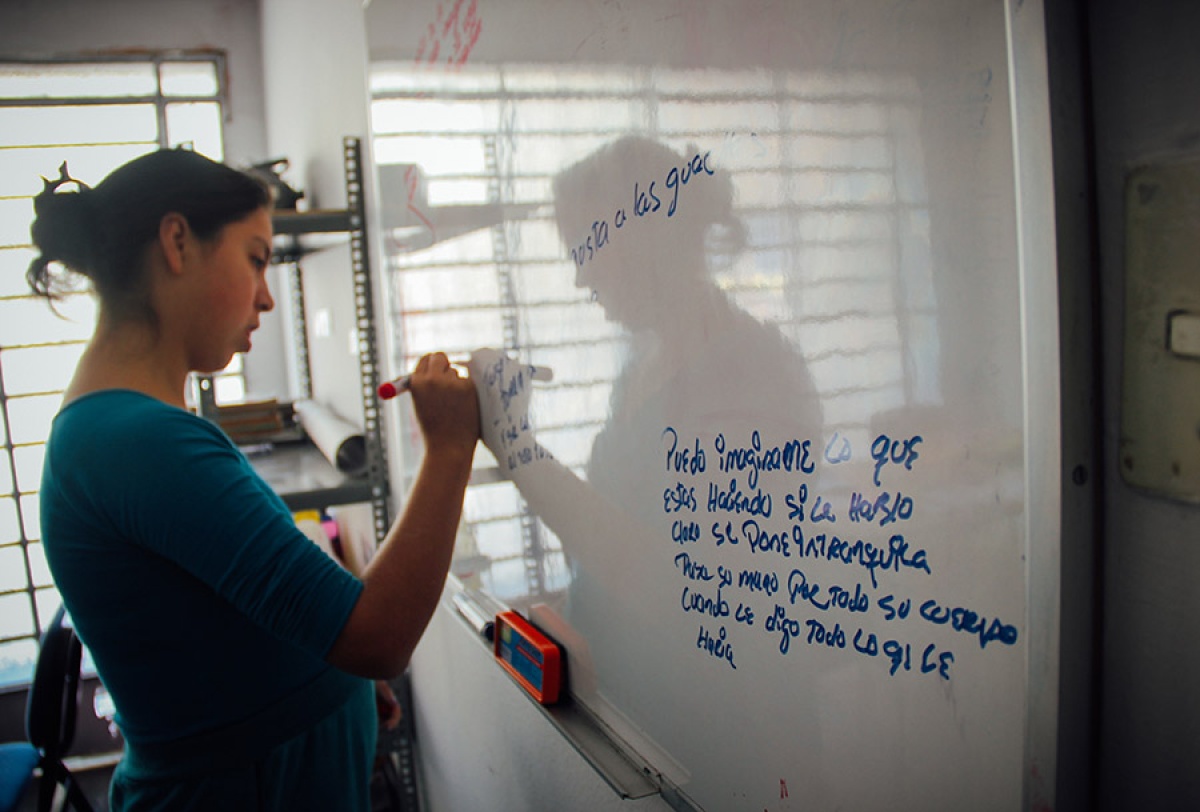 a las guac
Puedo imaginarme lo que
estas Haciendo si le Hablo
claro se pone intranquila
Pasa su mano por todo su cuerpo
cuando le digo todo lo q le
Haria